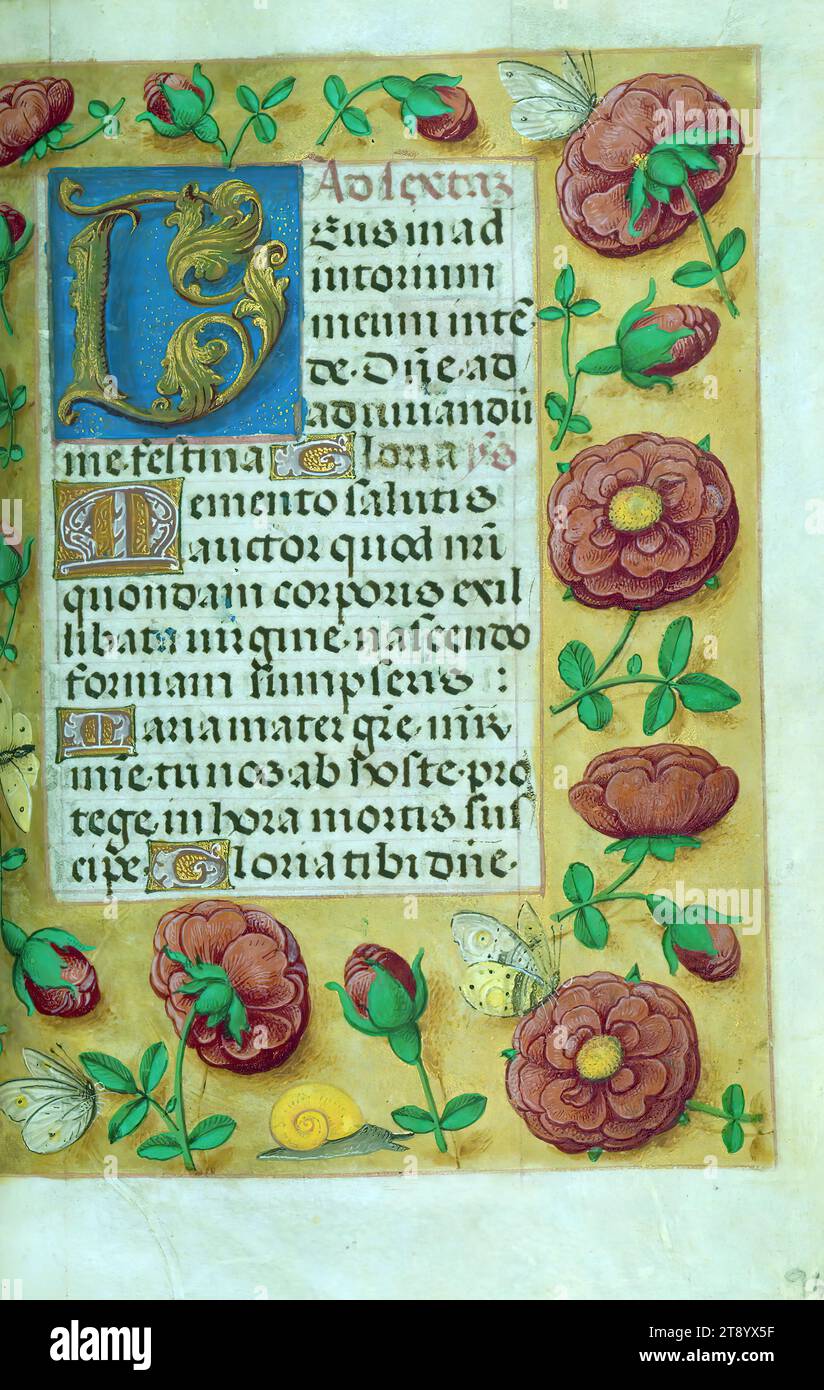 Ad sextaȝ
Deus in ad
iutorium
meum intē
de. Dn̄e ad
adiuuandū
me festina Gloria p̄s
Memento salutis
auctor quod nr̄i
quondam corporis exil
libata uirgine. nascendo
formam sumpseris :
Maria mater gr̄e. mr̄
mīe. tu nos ab hoste. pro
tege. in hora mortis sus
cipe. Gloria tibi dn̄e.
alamy
alamy
Image ID: 2T81YX5F
www.alamy.com